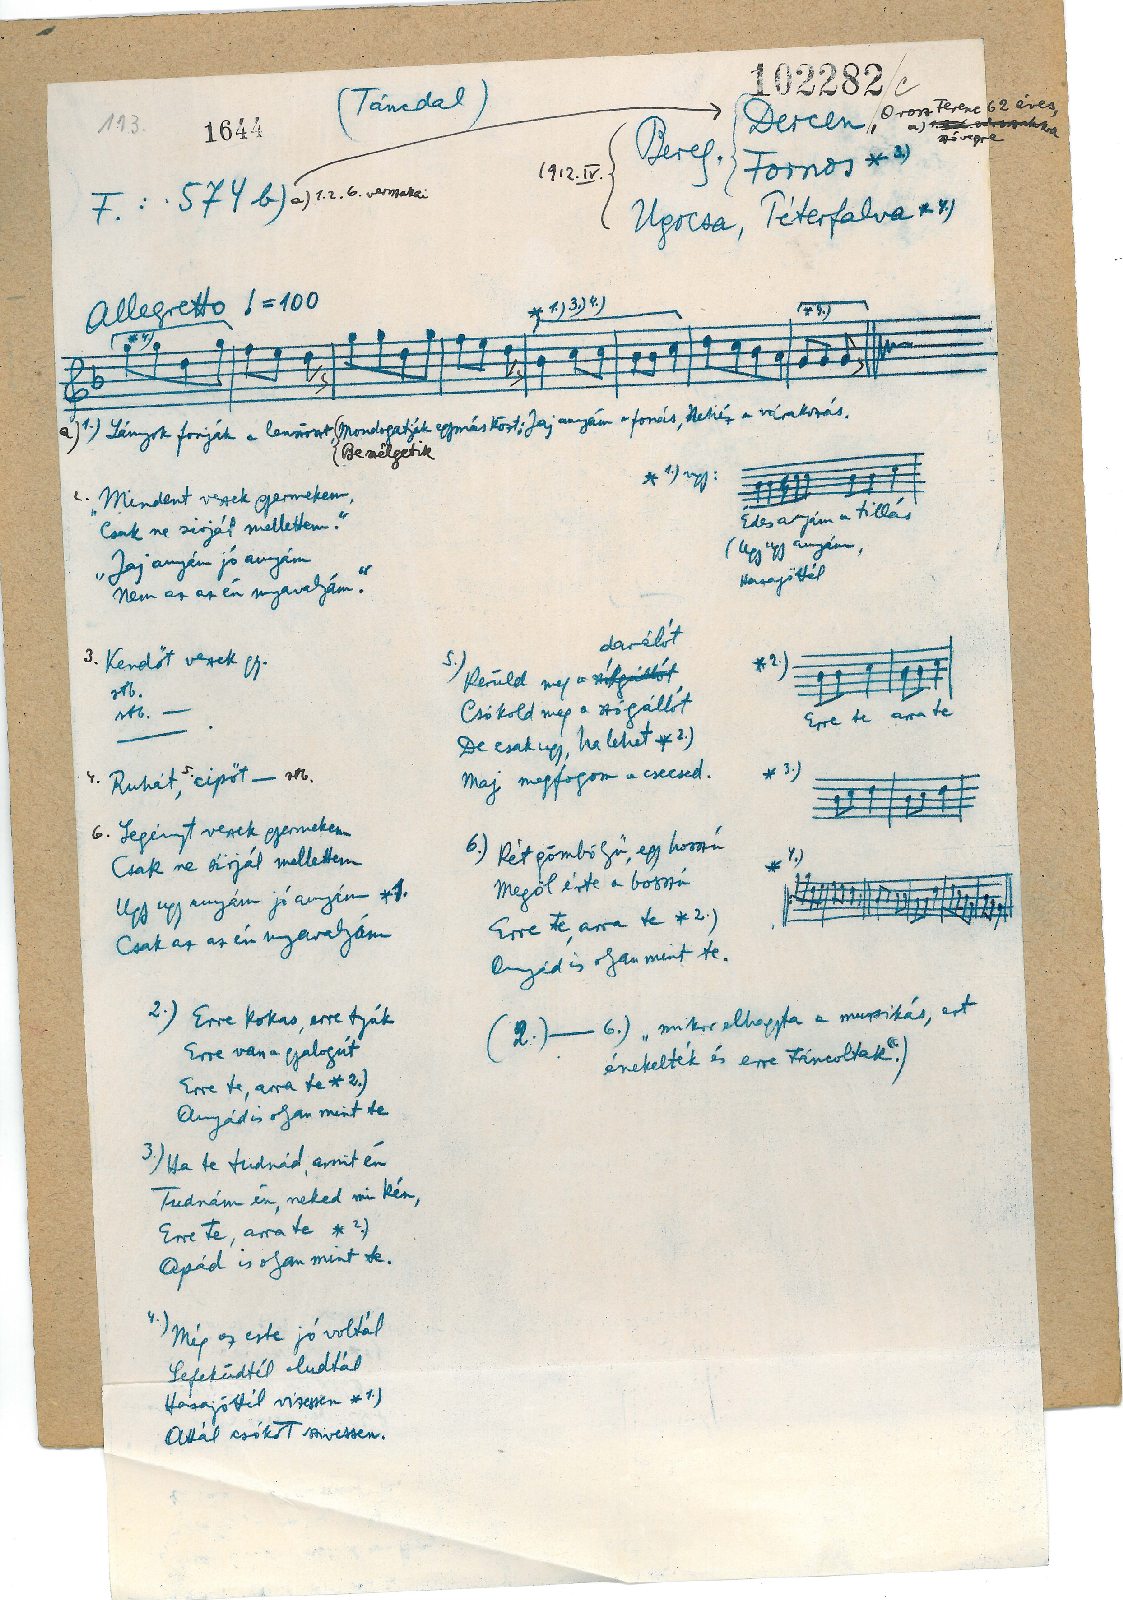 102282/c
113.
1644
(Táncdal)
Dercen, Orosz Ferenc 62 éves,
a)
szövegre
1912. IV. Bereg. Fornos *3.)
F.: 574 b) a) 1. 2. 6. versszakai
Ugocsa, Péterfalva *4.)
Allegretto ♩=100
*4.)
*1.) 3.) 4.)
*4.)
a) 1.) Lányok fonják a lenszöszt, (Mondogatják egymás közt: Jaj anyám a fonás, Nehéz a várakozás.
(Beszélgetik
2. „Mindent veszek gyermekem,
Csak ne sírjál mellettem."
„Jaj anyám jó anyám
Nem az az én nyavalyám."
*1.) vagy:
Édes anyám a tillás
(Ugy ugy anyám,
Hazajöttél
3. Kendőt veszek gy.
stb.
stb. —
4. Ruhát, 5. cipőt — stb.
6. Legényt veszek gyermekem
Csak ne sírjál mellettem
Ugy ugy anyám jó anyám *1.
Csak az az én nyavalyám
2.) Erre kokas, erre tyúk
Erre van a gyalogút
Erre te, arra te *2.)
Anyád is olyan mint te
3.) Ha te tudnád, amit én
Tudnám én, neked mi kén,
Erre te, arra te *2.)
Apád is olyan mint te.
4.) Még az este jó voltál
Lefeküdtél aludtál
Hazajöttél vizessen *1.)
Attál csókot szivessen.
5.) darálót
Kerüld meg a szógállót
Csókold meg a szógállót
De csak ugy, ha lehet *2.)
Maj megfogom a csecsed.
6.) Rét gömbölyű, egy hosszú
Megöl érte a bosszú
Erre te, arra te *2.)
Anyád is olyan mint te.
(2.) — 6.) „mikor elhagyta a muzsikás, ezt
énekelték és erre táncoltak".)
*2.)
Erre te arra te
*3.)
*4.)